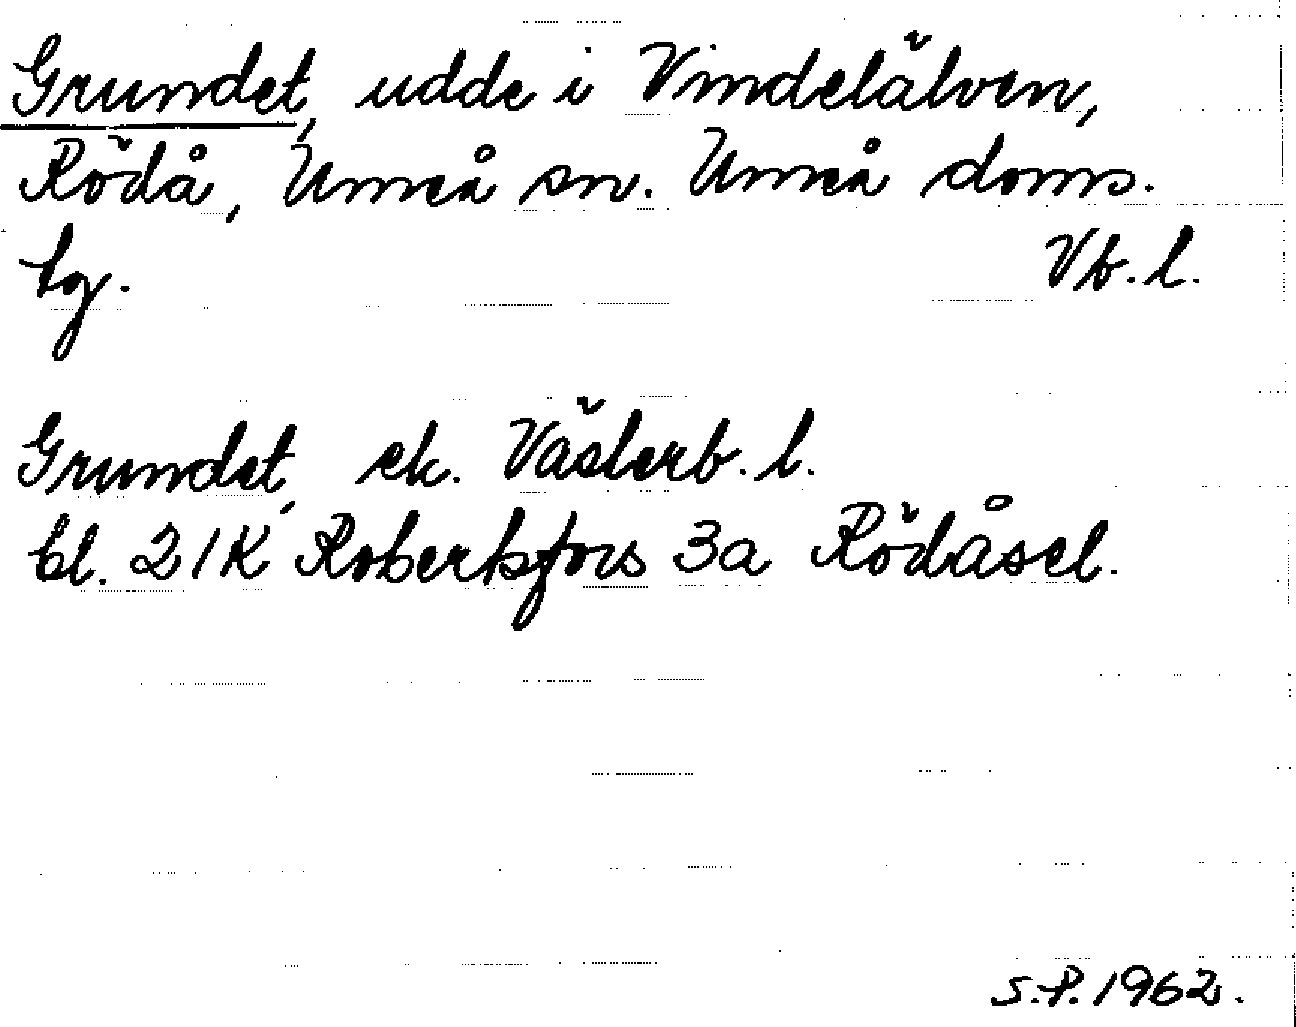 Grundet, udde i Vindelälven,
Rödå, Umeå sn. Umeå doms.
tg. Vb. l.
Grundet, ek. Västerb. l.
bl. 21K Robertsfors 3a Rödåsel.
S.P. 1962.